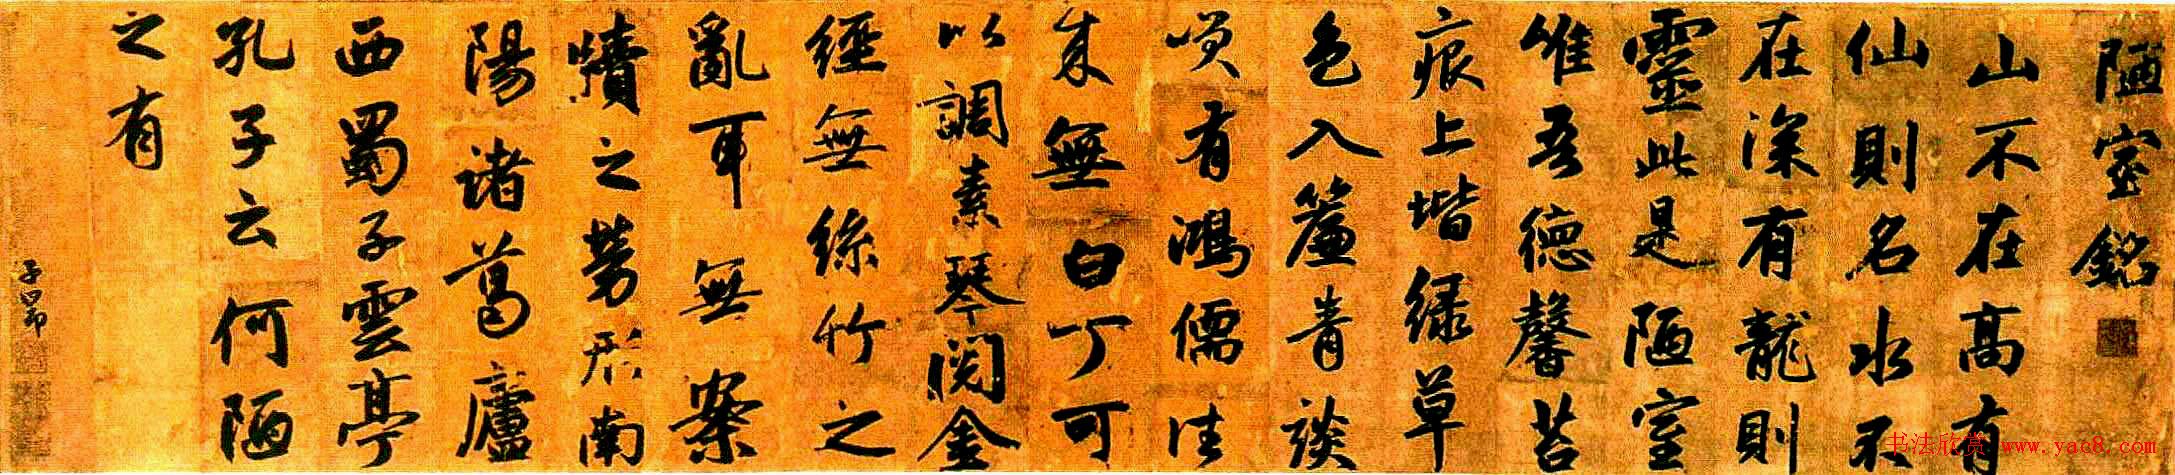 陋室銘
山不在高有
仙則名水不
在深有龍則
靈此是陋室
惟吾德馨苔
痕上堦綠草
色入簾青談
笑有鴻儒往
來無白丁可
以調素琴閱金
經無絲竹之
亂耳無案
牘之勞形南
陽諸葛廬
西蜀子雲亭
孔子云何陋
之有
子昂
书法欣赏 www.yac8.com